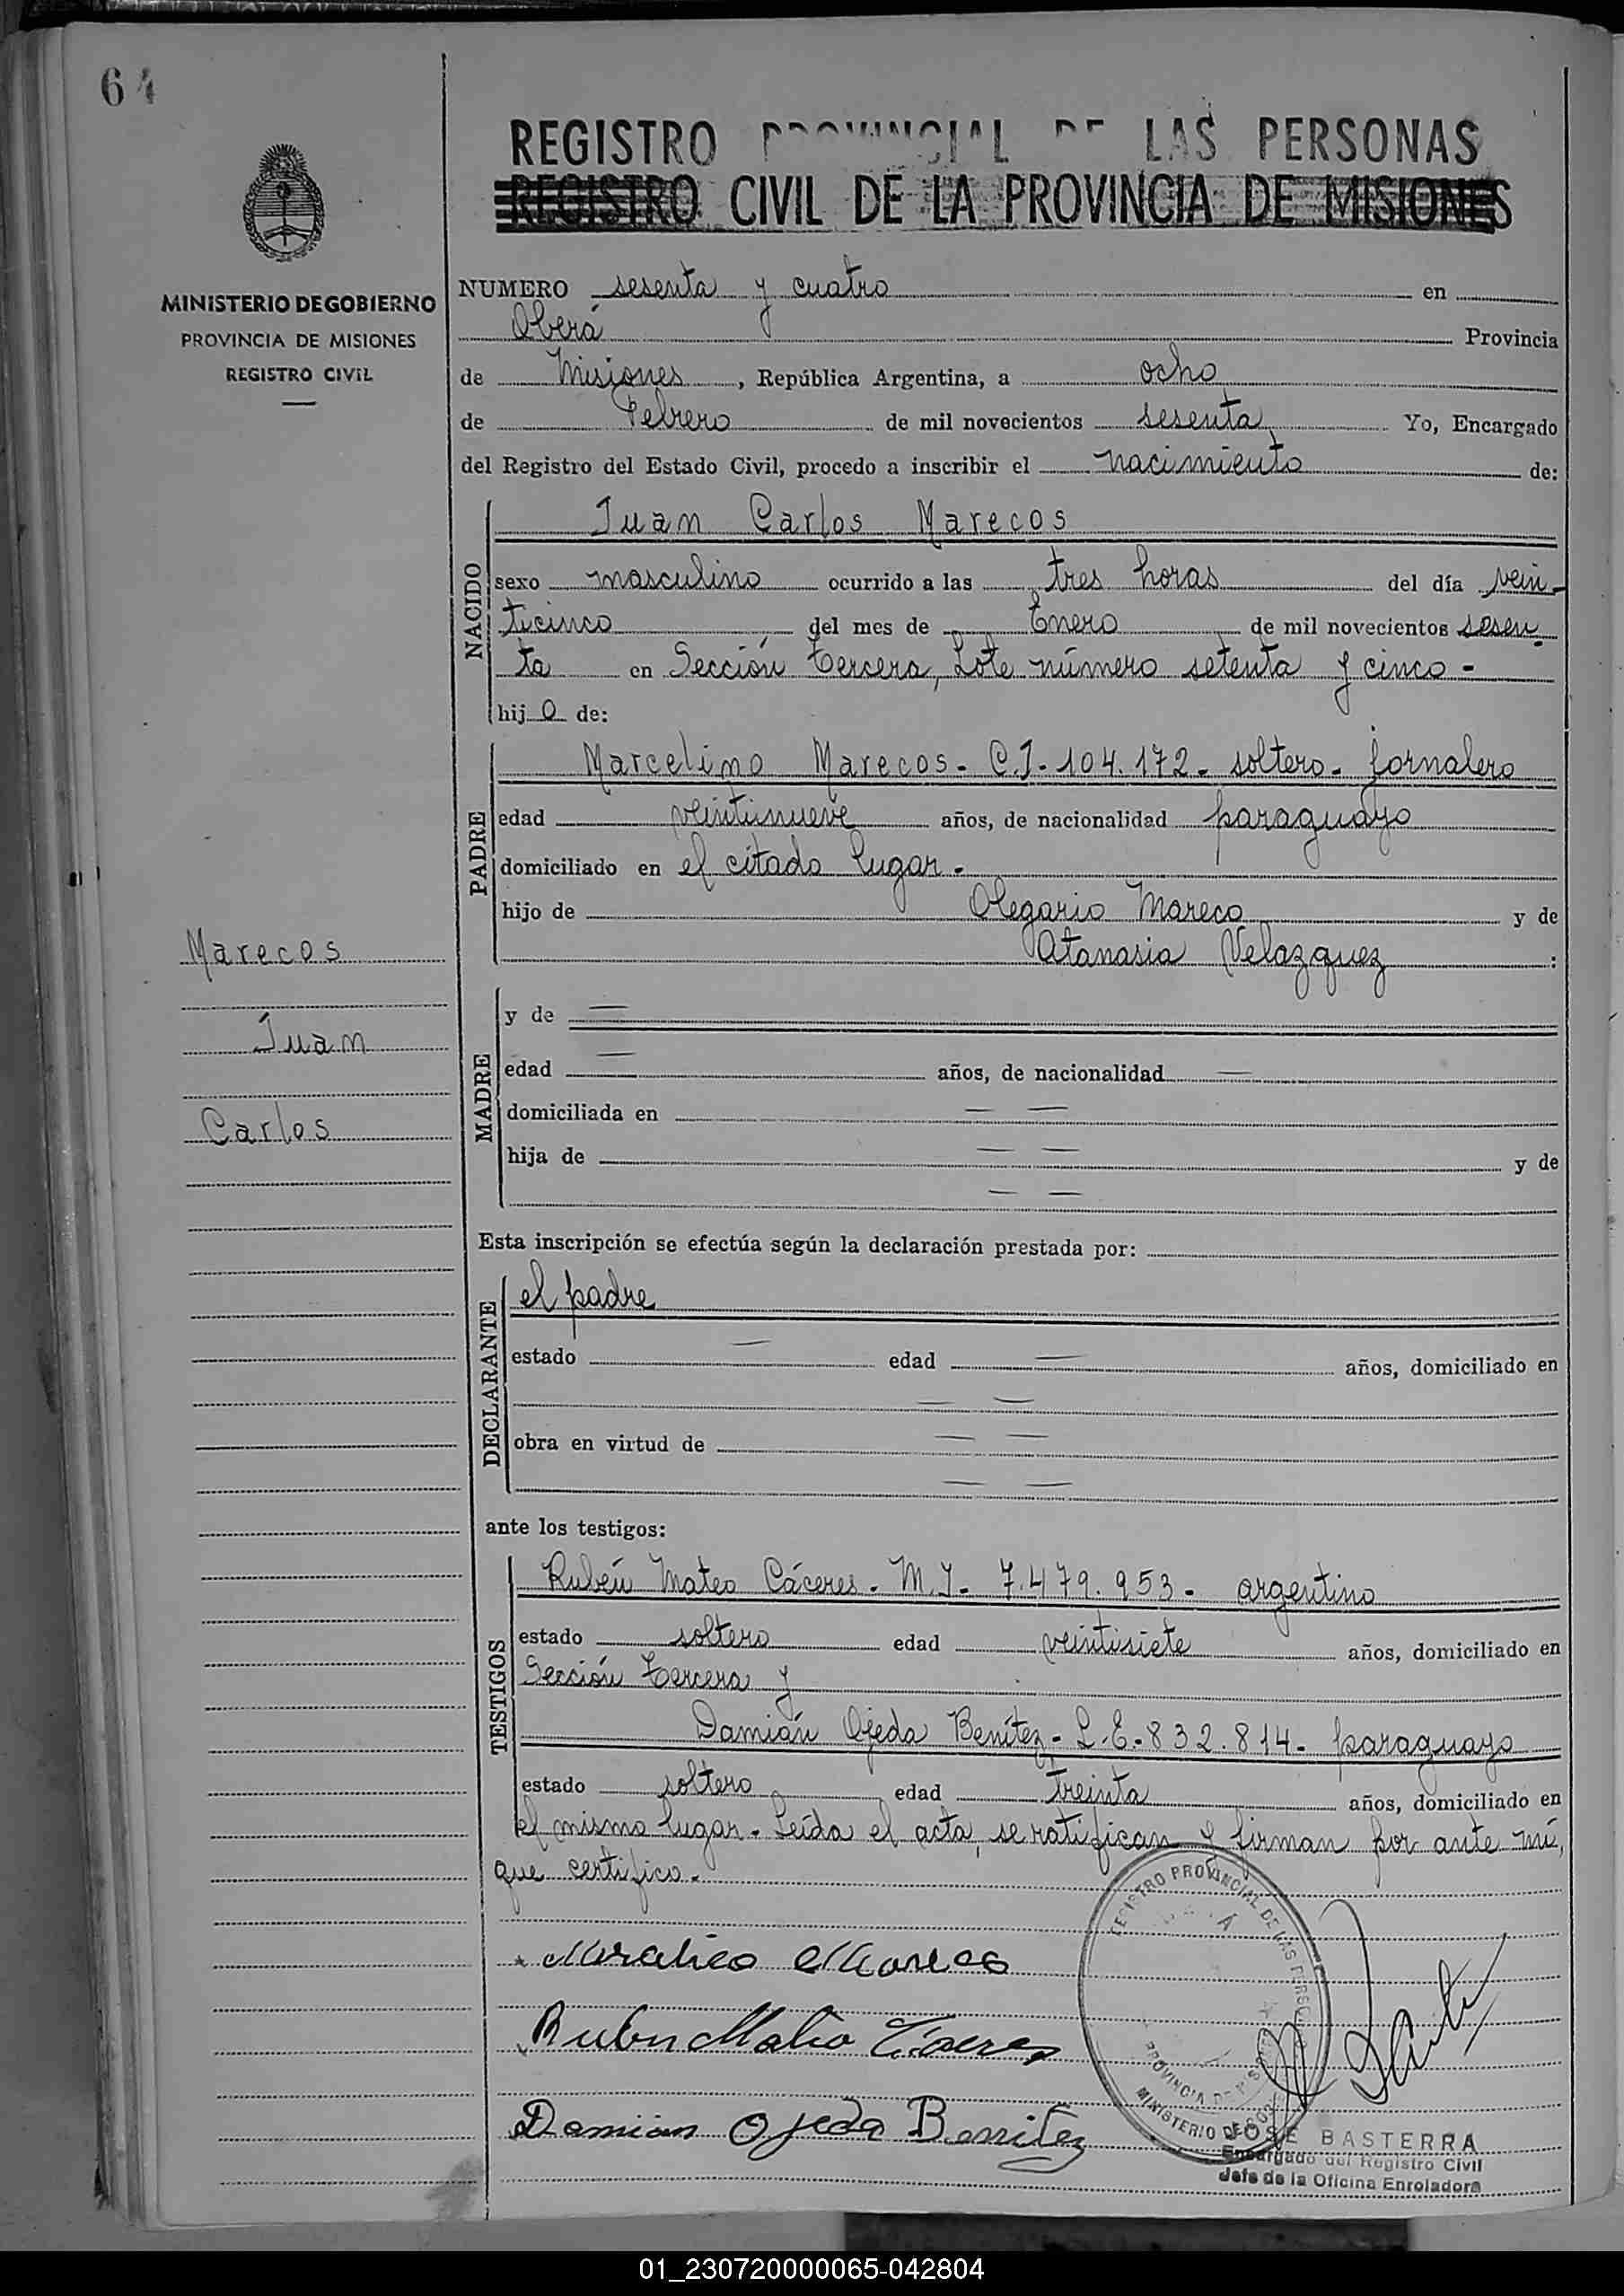 64
REGISTRO PROVINCIAL DE LAS PERSONAS
REGISTRO CIVIL DE LA PROVINCIA DE MISIONES
MINISTERIO DE GOBIERNO
PROVINCIA DE MISIONES
REGISTRO CIVIL
NUMERO sesenta y cuatro en
Oberá Provincia
de Misiones, República Argentina, a ocho
de Febrero de mil novecientos sesenta Yo, Encargado
del Registro del Estado Civil, procedo a inscribir el nacimiento de:
NACIDO
Juan Carlos Marecos
sexo masculino ocurrido a las tres horas del día vein-
ticinco del mes de Enero de mil novecientos sesen-
ta en Sección tercera, Lote número setenta y cinco -
hijo de:
PADRE
Marcelino Marecos - C.I - 104.172 - soltero - jornalero
edad veintinueve años, de nacionalidad paraguayo
domiciliado en el citado lugar -
hijo de Olegario Mareco y de
Atanasia Velazquez :
Marecos
Juan
Carlos
MADRE
y de —
edad — años, de nacionalidad —
domiciliada en — —
hija de — — y de
— —
Esta inscripción se efectúa según la declaración prestada por:
DECLARANTE
el padre
estado — edad — años, domiciliado en
— —
obra en virtud de — —
— —
ante los testigos:
TESTIGOS
Rubén Mateo Cáceres - M.I - 7.479.953 - argentino
estado soltero edad veintisiete años, domiciliado en
Sección tercera y
Damián Ojeda Benítez - L.E.-832.814 - paraguayo
estado soltero edad treinta años, domiciliado en
el mismo lugar - Leída el acta, se ratifican y firman por ante mí,
que certifico -
Ruben Mateo Cáceres
Damián Ojeda Benitez
REGISTRO PROVINCIAL DE LAS PERSONAS
PROVINCIA DE MISIONES
MINISTERIO DE GOB
JOSE BASTERRA
Encargado del Registro Civil
Jefe de la Oficina Enroladora
01_230720000065-042804